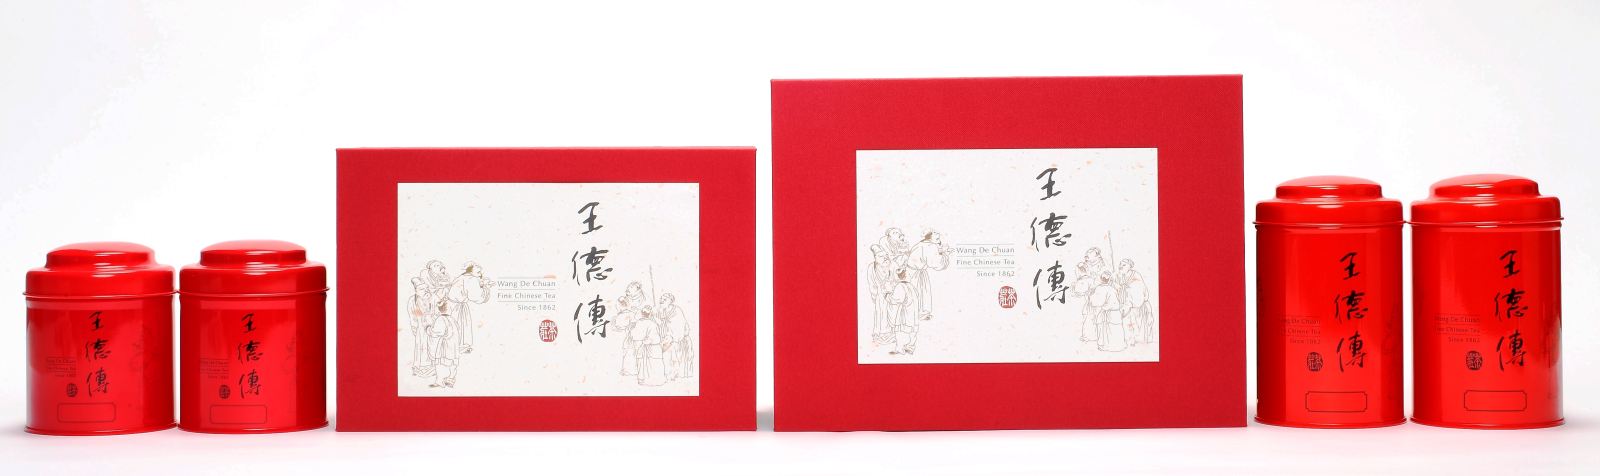 王德傳
Wang De Chuan
Fine Chinese Tea
Since 1862
王德傳
Wang De Chuan
Fine Chinese Tea
Since 1862
王德傳
Wang De Chuan
Fine Chinese Tea
Since 1862
王德傳
Wang De Chuan
Fine Chinese Tea
Since 1862
王德傳
ng De Chuan
Chinese Tea
Since 1862
王德傳
ang De Chuan
ine Chinese Tea
Since 1862